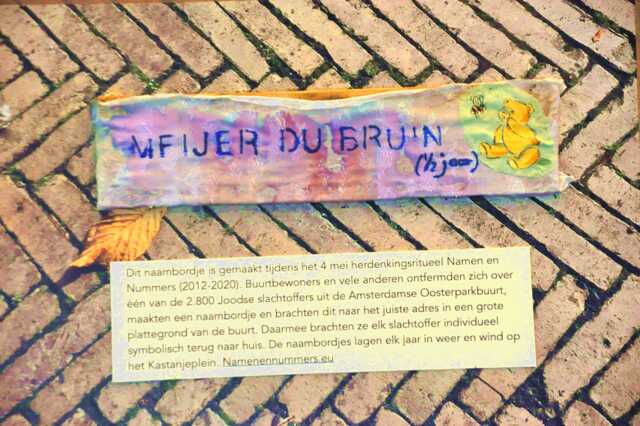 MEIJER DU BRUIN
(½ jaar)
Dit naambordje is gemaakt tijdens het 4 mei herdenkingsritueel Namen en
Nummers (2012-2020). Buurtbewoners en vele anderen ontfermden zich over
één van de 2.800 Joodse slachtoffers uit de Amsterdamse Oosterparkbuurt,
maakten een naambordje en brachten dit naar het juiste adres in een grote
plattegrond van de buurt. Daarmee brachten ze elk slachtoffer individueel
symbolisch terug naar huis. De naambordjes lagen elk jaar in weer en wind op
het Kastanjeplein. Namenennummers.eu